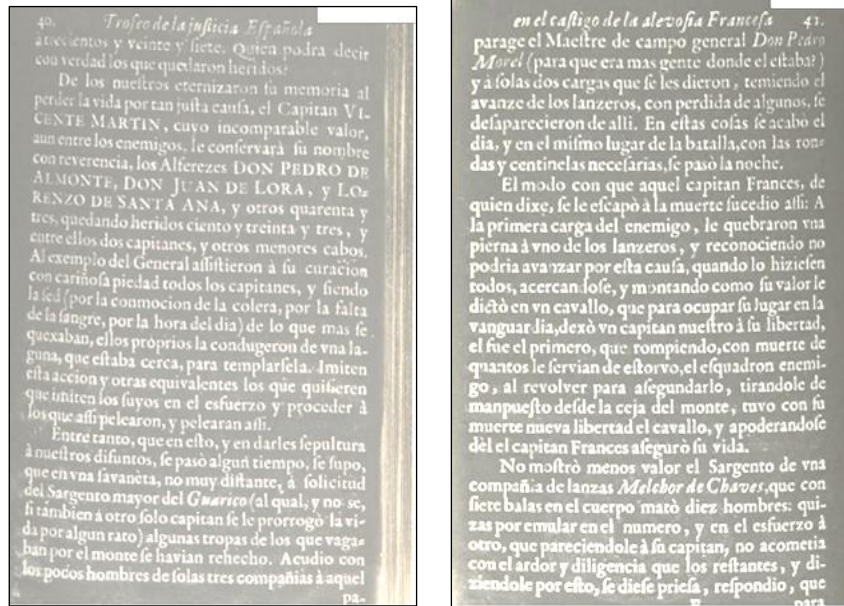 40. Trofeo de la juſticia Eſpañola
atrecientos y veinte y ſiete. Quien podra decir
con verdad los que quedaron heridos?
De los nueſtros eternizaron ſu memoria al
perder la vida por tan juſta cauſa, el Capitan VI-
CENTE MARTIN, cuyo incomparable valor,
aun entre los enemigos, le conſervarà ſu nombre
con reverencia, los Alferezes DON PEDRO DE
ALMONTE, DON JUAN DE LORA, y LO-
RENZO DE SANTA ANA, y otros quarenta y
tres, quedando heridos ciento y treinta y tres, y
entre ellos dos capitanes, y otros menores cabos.
Al exemplo del General aſſiſtieron à ſu curacion
con cariñoſa piedad todos los capitanes, y ſiendo
la ſed (por la conmocion de la colera, por la falta
de la ſangre, por la hora del dia) de lo que mas ſe
quexaban, ellos proprios la condugeron de vna la-
guna, que eſtaba cerca, para templarſela. Imiten
eſta accion y otras equivalentes los que quiſieren
que imiten los ſuyos en el esfuerzo y proceder à
los que aſſi pelearon, y pelearan aſſi.
Entre tanto, que en eſto, y en darles ſepultura
à nueſtros difuntos, ſe paſò algun tiempo, ſe ſupo,
que en vna ſavaneta, no muy diſtante, à ſolicitud
del Sargento mayor del Guarico (al qual, y no se,
ſi tambien à otro ſolo capitan ſe le prorrogò la vi-
da por algun rato) algunas tropas de los que vaga-
ban por el monte ſe havian rehecho. Acudio con
los pocos hombres de ſolas tres compañias à aquel
pa-
en el caſtigo de la alevoſia Franceſa 41.
parage el Maeſtre de campo general Don Pedro
Morel (para que era mas gente donde el eſtaba?)
y à ſolas dos cargas que ſe les dieron, temiendo el
avanze de los lanzeros, con perdida de algunos, ſe
deſaparecieron de alli. En eſtas coſas ſe acabò el
dia, y en el miſmo lugar de la batalla, con las ron-
das y centinelas neceſarias, ſe pasò la noche.
El modo con que aquel capitan Frances, de
quien dixe, ſe le eſcapò à la muerte ſucedio aſſi: A
la primera carga del enemigo, le quebraron vna
pierna à vno de los lanzeros, y reconociendo no
podria avanzar por eſta cauſa, quando lo hizieſen
todos, acercandoſe, y montando como ſu valor le
dictò en vn cavallo, que para ocupar ſu lugar en la
vanguardia, dexò vn capitan nueſtro à ſu libertad,
el fue el primero, que rompiendo, con muerte de
quantos le ſervian de eſtorvo, el eſquadron enemi-
go, al revolver para aſegundarlo, tirandole de
manpueſto deſde la ceja del monte, tuvo con ſu
muerte nueva libertad el cavallo, y apoderandoſe
dèl el capitan Frances aſegurò ſu vida.
No moſtrò menos valor el Sargento de vna
compañia de lanzas Melchor de Chaves, que con
ſiete balas en el cuerpo matò diez hombres: qui-
zas por emular en el numero, y en el esfuerzo à
otro, que pareciendole à ſu capitan, no acometia
con el ardor y diligencia que los reſtantes, y di-
ziendole por eſto, ſe dieſe prieſa, reſpondio, que
para